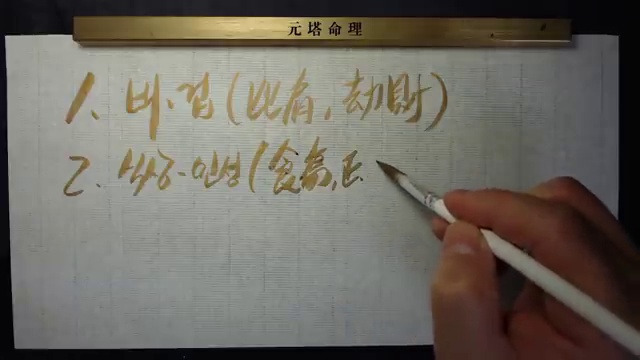 元塔命理
1. 비·겁 (比肩, 劫財)
2. 식상·인성 (食傷,